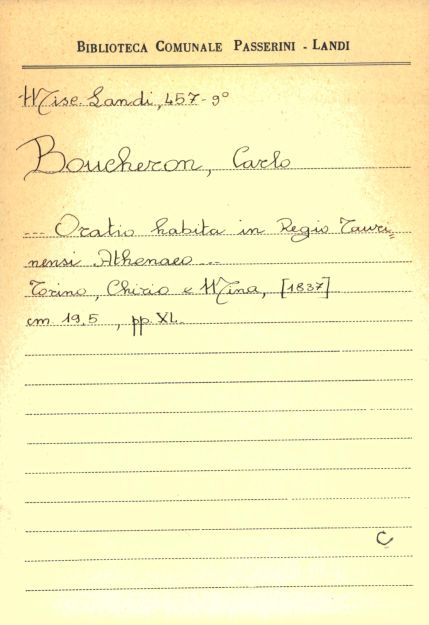 BIBLIOTECA COMUNALE PASSERINI - LANDI
Misc. Landi, 457-9°
Boucheron, Carlo
--- Oratio habita in Regio Tauri=
nensi Athenaeo ---
Torino, Chirio e Mina, [1837]
cm 19,5 , pp. XL.
C